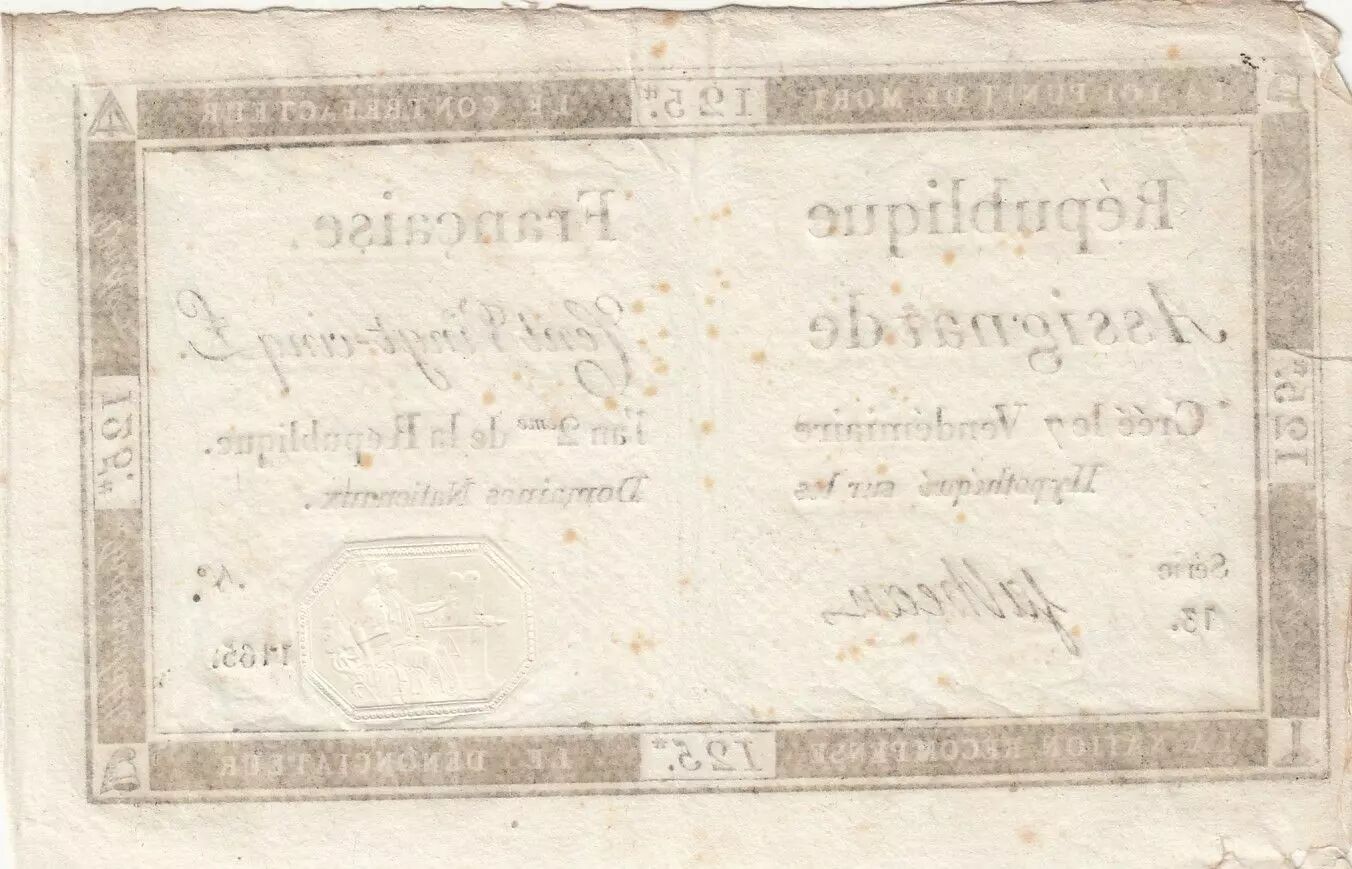 LA LOI PUNIT DE MORT 125.# LE CONTREFACTEUR
République Française.
Assignat de Cent Vingt-cinq £.
Créé le 7 Vendémiaire l'an 2eme de la République.
Hypothéqué sur les Domaines Nationaux.
Série
13.
N°
1165.
125#
125.#
LA NATION RÉCOMPENSE 125.# LE DÉNONCIATEUR